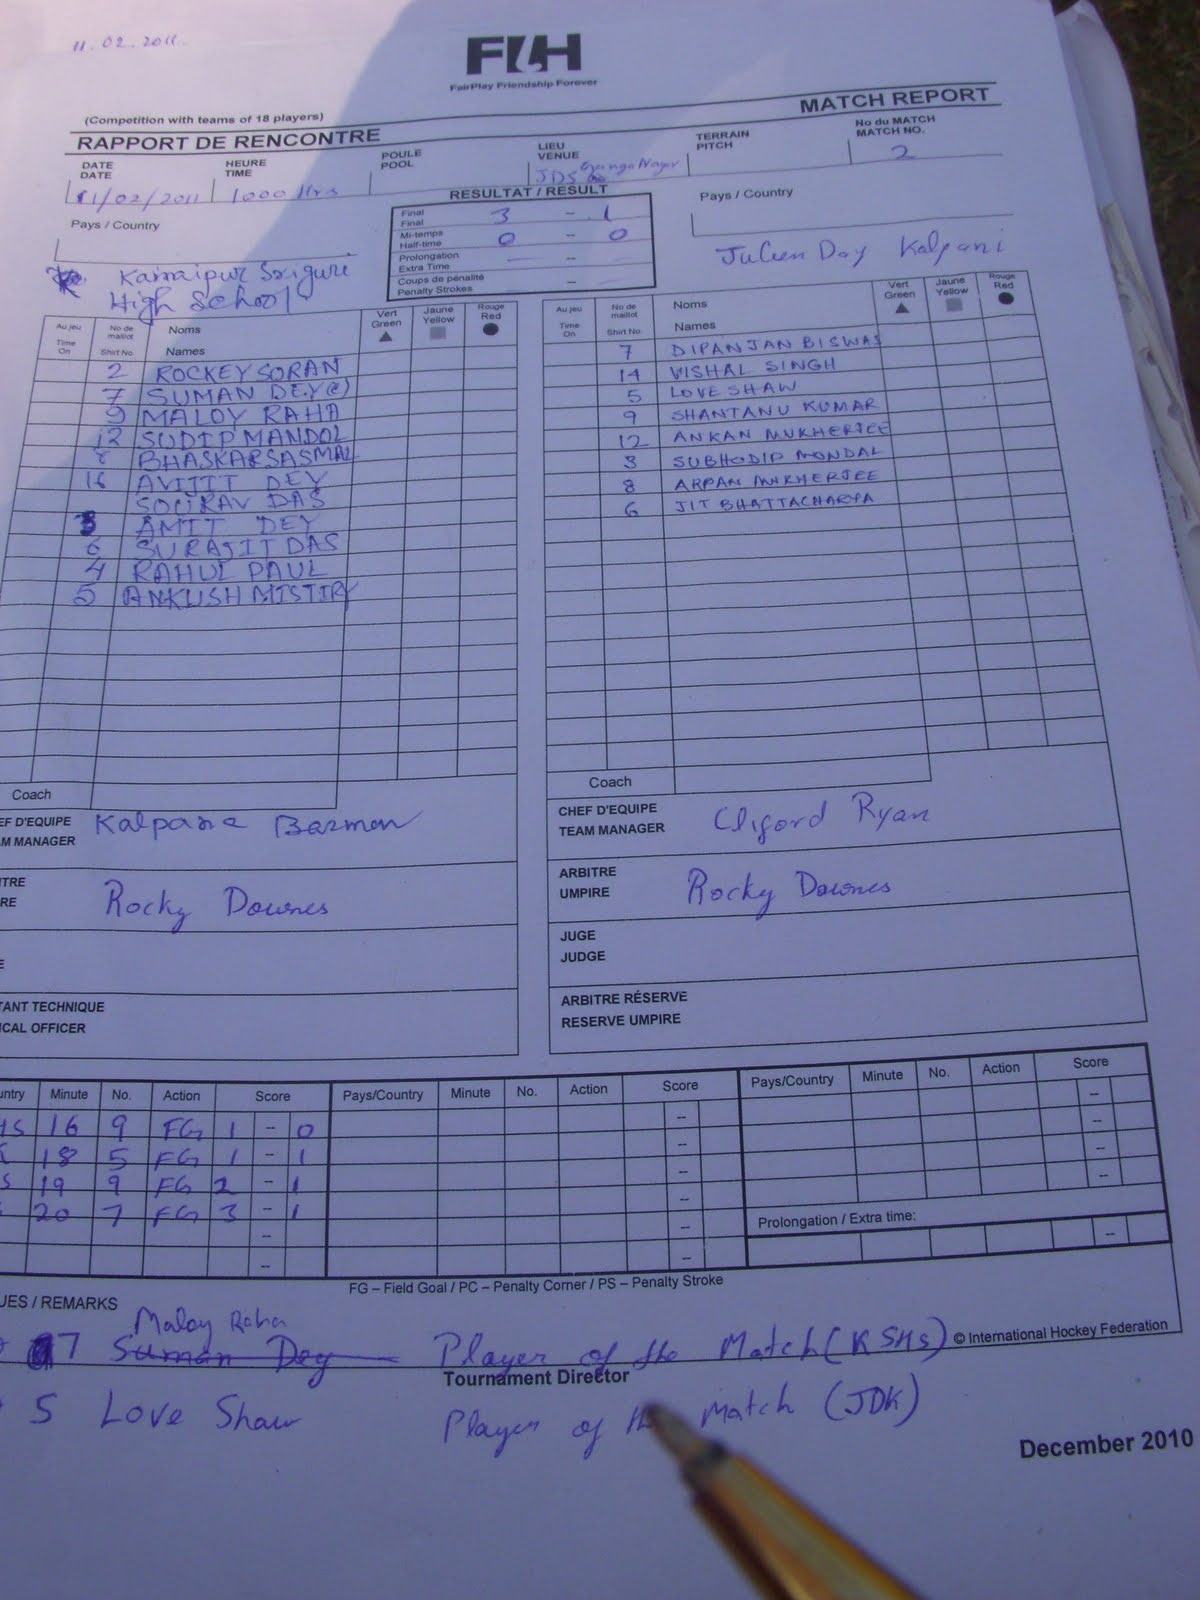 11.02.2011.
FIH
FairPlay Friendship Forever
(Competition with teams of 18 players)
MATCH REPORT
RAPPORT DE RENCONTRE
DATE
DATE
11/02/2011
HEURE
TIME
1000 Hrs
POULE
POOL
LIEU
VENUE
JDS Ganga Nagar
TERRAIN
PITCH
No du MATCH
MATCH NO.
2
Pays / Country
RESULTAT / RESULT
Final
Final
3 - 1
Mi-temps
Half-time
0 - 0
Prolongation
Extra Time
-
Coups de pénalité
Penalty Strokes
-
Pays / Country
High School
Julien Day Kalpani
Au jeu
Time On
No de maillot
Shirt No.
Noms
Names
Vert
Green
Jaune
Yellow
Rouge
Red
2 ROCKEY SORAN
7 SUMAN DEY(C)
9 MALOY RAHA
12 SUDIP MANDOL
8 BHASKAR SASMAL
16 AVIJIT DEY
SOURAV DAS
3 AMIT DEY
6 SURAJIT DAS
4 RAHUL PAUL
5 ANKUSH MISTIRY
Coach
Au jeu
Time On
No de maillot
Shirt No.
Noms
Names
Vert
Green
Jaune
Yellow
Rouge
Red
7 DIPANJAN BISWAS
14 VISHAL SINGH
5 LOVE SHAW
9 SHANTANU KUMAR
12 ANKAN MUKHERJEE
3 SUBHODIP MONDAL
8 ARPAN MUKHERJEE
6 JIT BHATTACHARYA
Coach
EF D'EQUIPE
M MANAGER
Kalpana Barman
TRE
RE
Rocky Downes
E
TANT TECHNIQUE
ICAL OFFICER
CHEF D'EQUIPE
TEAM MANAGER
Cliford Ryan
ARBITRE
UMPIRE
Rocky Downes
JUGE
JUDGE
ARBITRE RÉSERVE
RESERVE UMPIRE
untry Minute No. Action Score
HS 16 9 FG 1 - 0
18 5 FG 1 - 1
S 19 9 FG 2 - 1
20 7 FG 3 - 1
-
-
Pays/Country Minute No. Action Score
-
-
-
-
-
-
Pays/Country Minute No. Action Score
-
-
-
-
Prolongation / Extra time:
-
FG – Field Goal / PC – Penalty Corner / PS – Penalty Stroke
UES / REMARKS
© International Hockey Federation
Maloy Raha
7 Suman Dey Player of the Match (KSHS)
Tournament Director
5 Love Shaw Player of the Match (JDK)
December 2010